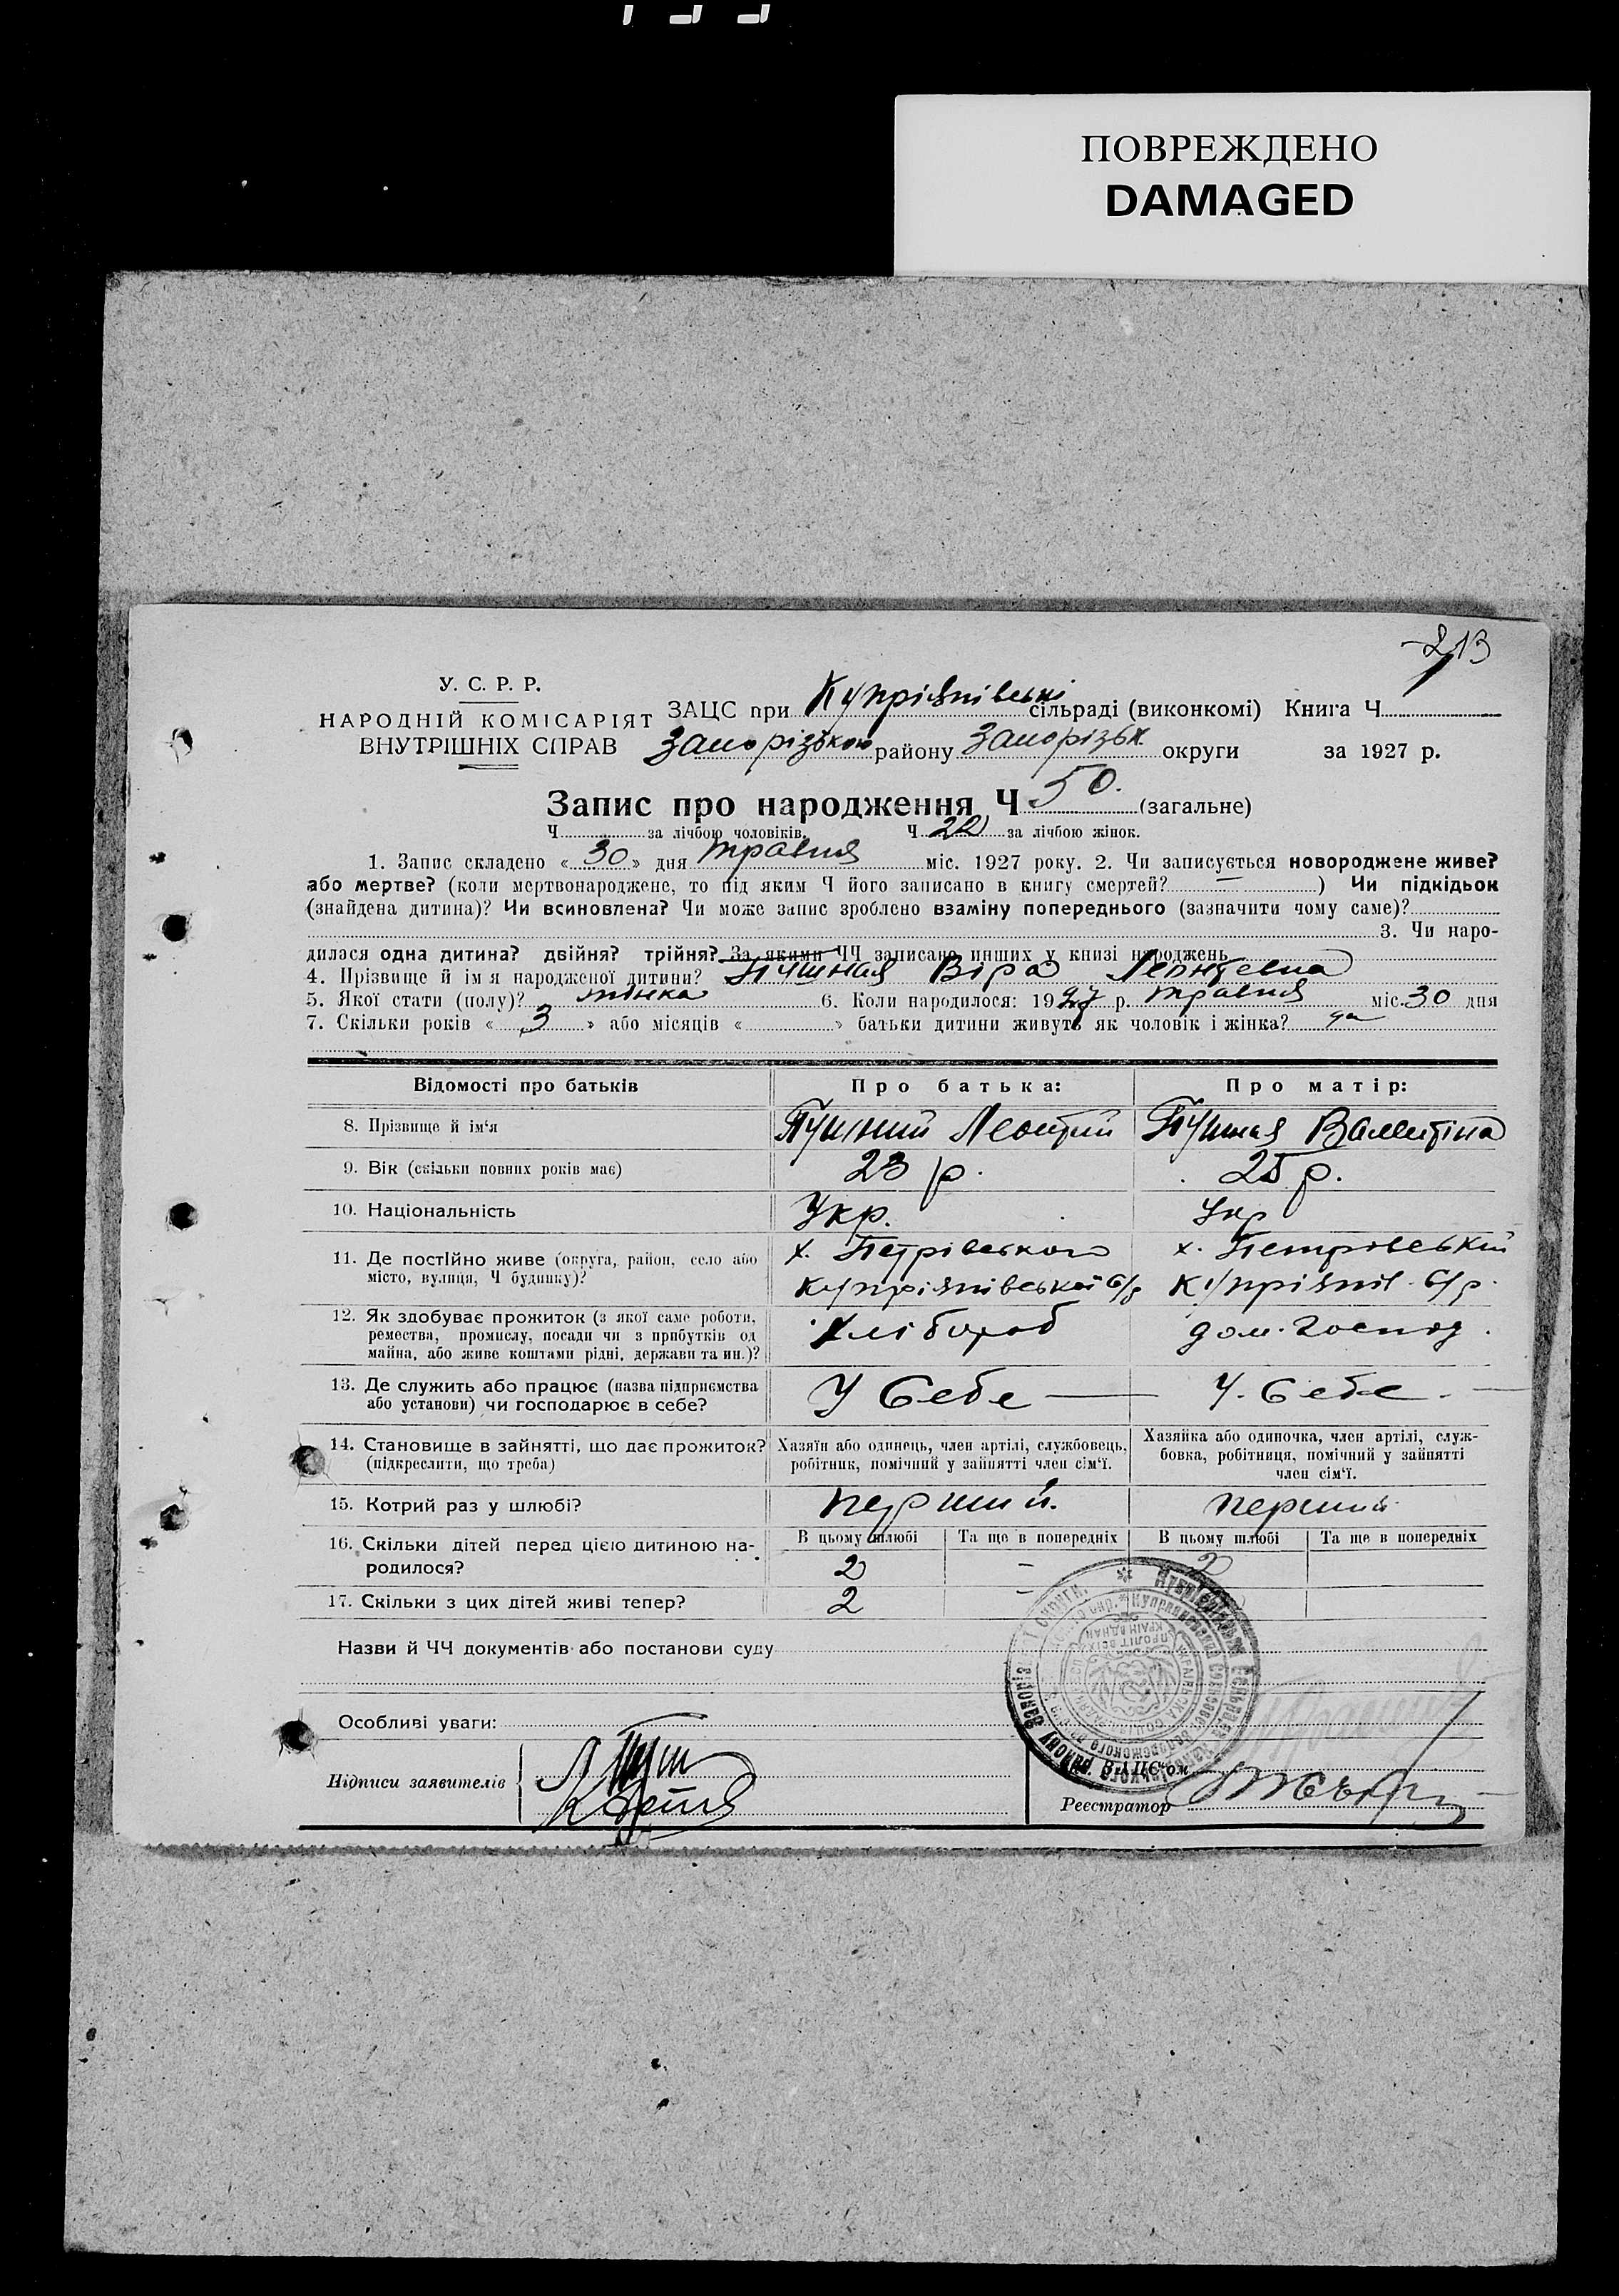 ПОВРЕЖДЕНО
DAMAGED
213
У. С. Р. Р.
НАРОДНІЙ КОМІСАРІЯТ
ВНУТРІШНІХ СПРАВ
ЗАЦС при Купріянівські сільраді (виконкомі) Книга Ч
Запорізького району Запорізьк. округи за 1927 р.
Запис про народження Ч 50. (загальне)
Ч за лічбою чоловіків. Ч 22 за лічбою жінок.
1. Запис складено «30» дня травня міс. 1927 року. 2. Чи записується новороджене живе?
або мертве? (коли мертвонароджене, то під яким Ч його записано в книгу смертей? — ) Чи підкідьок
(знайдена дитина)? Чи всиновлена? Чи може запис зроблено взаміну попереднього (зазначити чому саме)?
3. Чи наро-
дилася одна дитина? двійня? трійня? За якими ЧЧ записано инших у книзі народжень
4. Прізвище й ім я народженої дитини? Пушная Віра Леонтевна
5. Якої стати (полу)? жінка 6. Коли народилося: 1927 р. травня міс. 30 дня
7. Скільки років « 3 » або місяців « » батьки дитини живуть як чоловік і жінка? да
Відомості про батьків Про батька: Про матір:
8. Прізвище й ім‘я Пушний Леонтий Пушная Валентіна
9. Вік (скільки повних років має) 23 р. 25 р.
10. Національність Укр. Укр
11. Де постійно живе (округа, район, село або місто, вулиця, Ч будинку)? х. Петрівського Купріянівської С/р х. Петровський Купріянів. С/р.
12. Як здобуває прожиток (з якої саме роботи, ремества, промислу, посади чи з прибутків од майна, або живе коштами рідні, держави та ин.)? Хлібороб дом. господ.
13. Де служить або працює (назва підприємства або установи) чи господарює в себе? У Себе — У. Себе. —
14. Становище в зайнятті, що дає прожиток? (підкреслити, що треба) Хазяїн або одинець, член артілі, службовець, робітник, помічний у зайнятті член сім‘ї. Хазяйка або одиночка, член артілі, служ-бовка, робітниця, помічний у зайнятті член сім‘ї.
15. Котрий раз у шлюбі? перший. перший
В цьому шлюбі Та ще в попередніх В цьому шлюбі Та ще в попередніх
16. Скільки дітей перед цією дитиною на-родилося? 2 - 2
17. Скільки з цих дітей живі тепер? 2 -
Назви й ЧЧ документів або постанови суду
Особливі уваги:
Підписи заявителів
Реєстратор